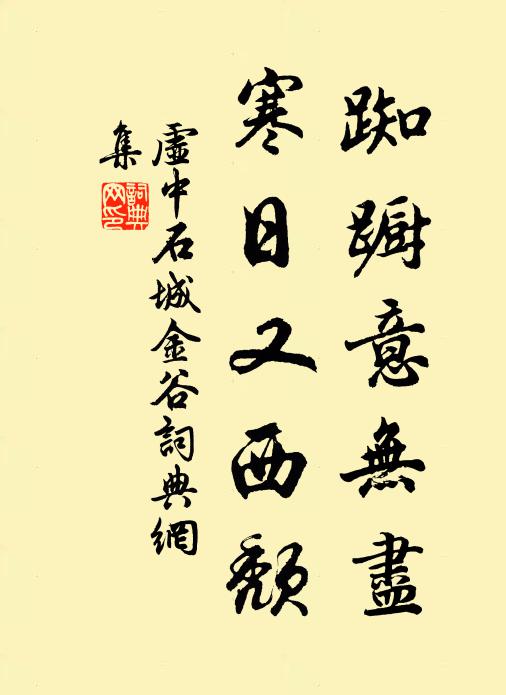 踟躕意無盡
寒日又西頹
虛中石城金谷詞典網
集
詞典網印